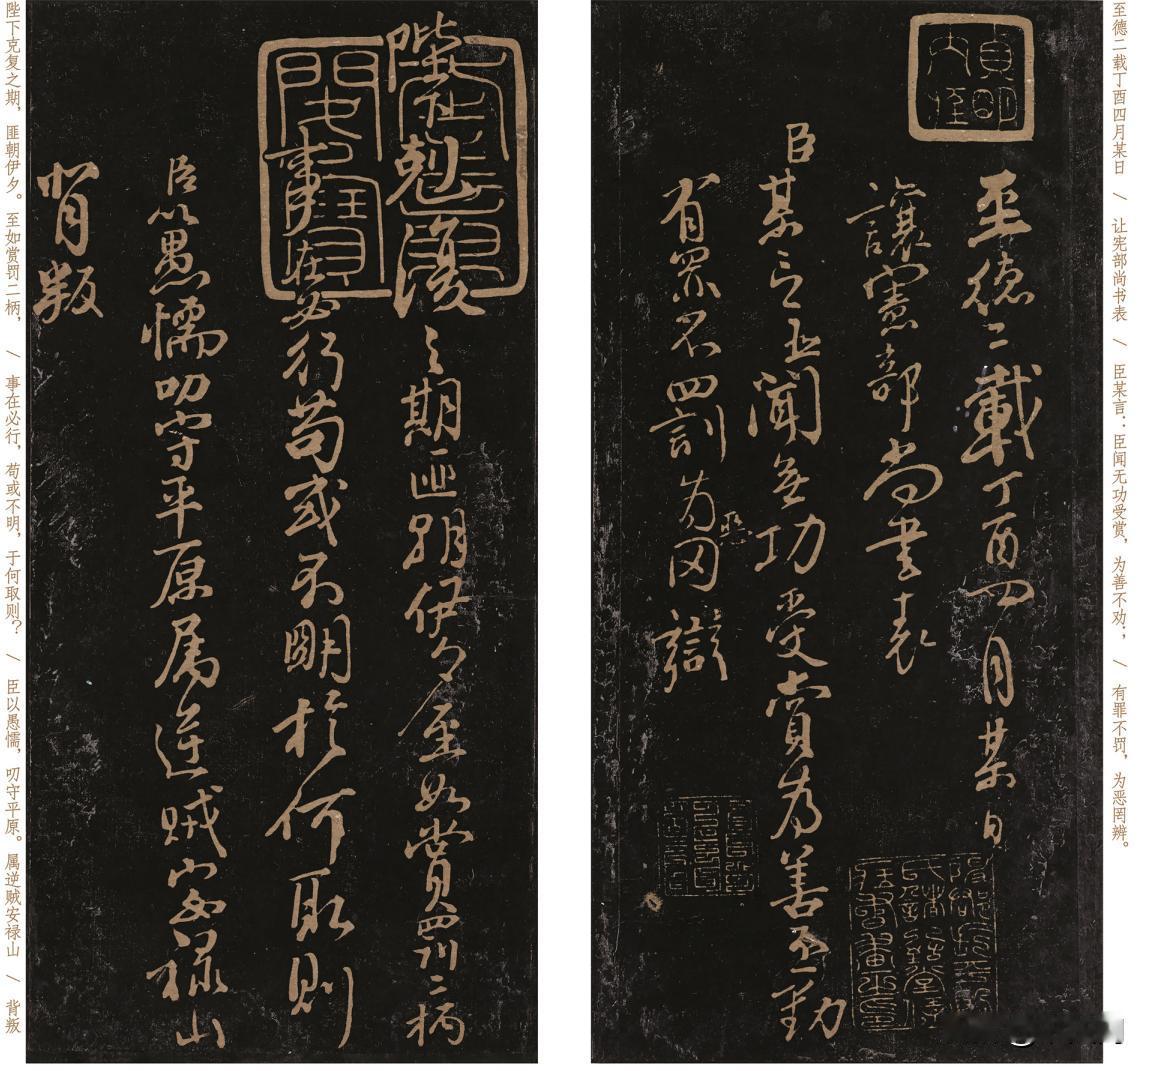 至德二载丁酉四月某日 / 让宪部尚书表 / 臣某言：臣闻无功受赏，为善不劝； / 有罪不罚，为恶罔辨。
至德二載丁酉四月某日
讓憲部尚書表
臣某言臣聞無功受賞為善不勸
有罪不罰為惡罔辯
陛下剋復之期匪朝伊夕至如賞罰二柄
事在必行苟或不明於何取則
臣以愚懦叨守平原屬逆賊安祿山
背叛
陛下克复之期，匪朝伊夕。至如赏罚二柄， / 事在必行，苟或不明，于何取则？ / 臣以愚懦，叨守平原。属逆贼安禄山 / 背叛